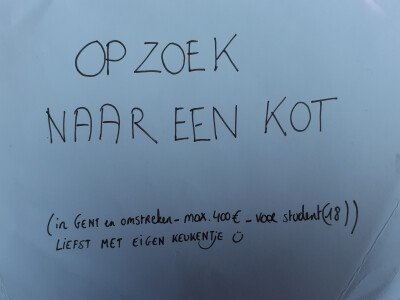 OP ZOEK
NAAR EEN KOT
(in GENT en omstreken - max. 400€ - voor student (18))
LIEFST MET EIGEN KEUKENTJE ☺